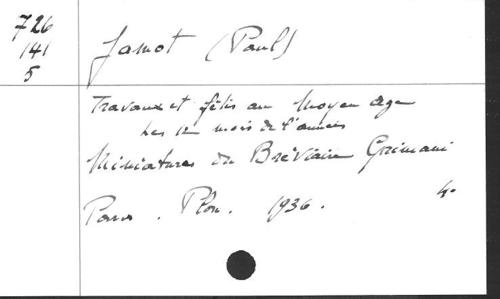 726
141
5
Jamot (Paul)
Travaux et fêtes au Moyen Age
Les 12 mois de l'année
Miniatures du Bréviaire Grimani
Paris. Plon. 1936. 4°